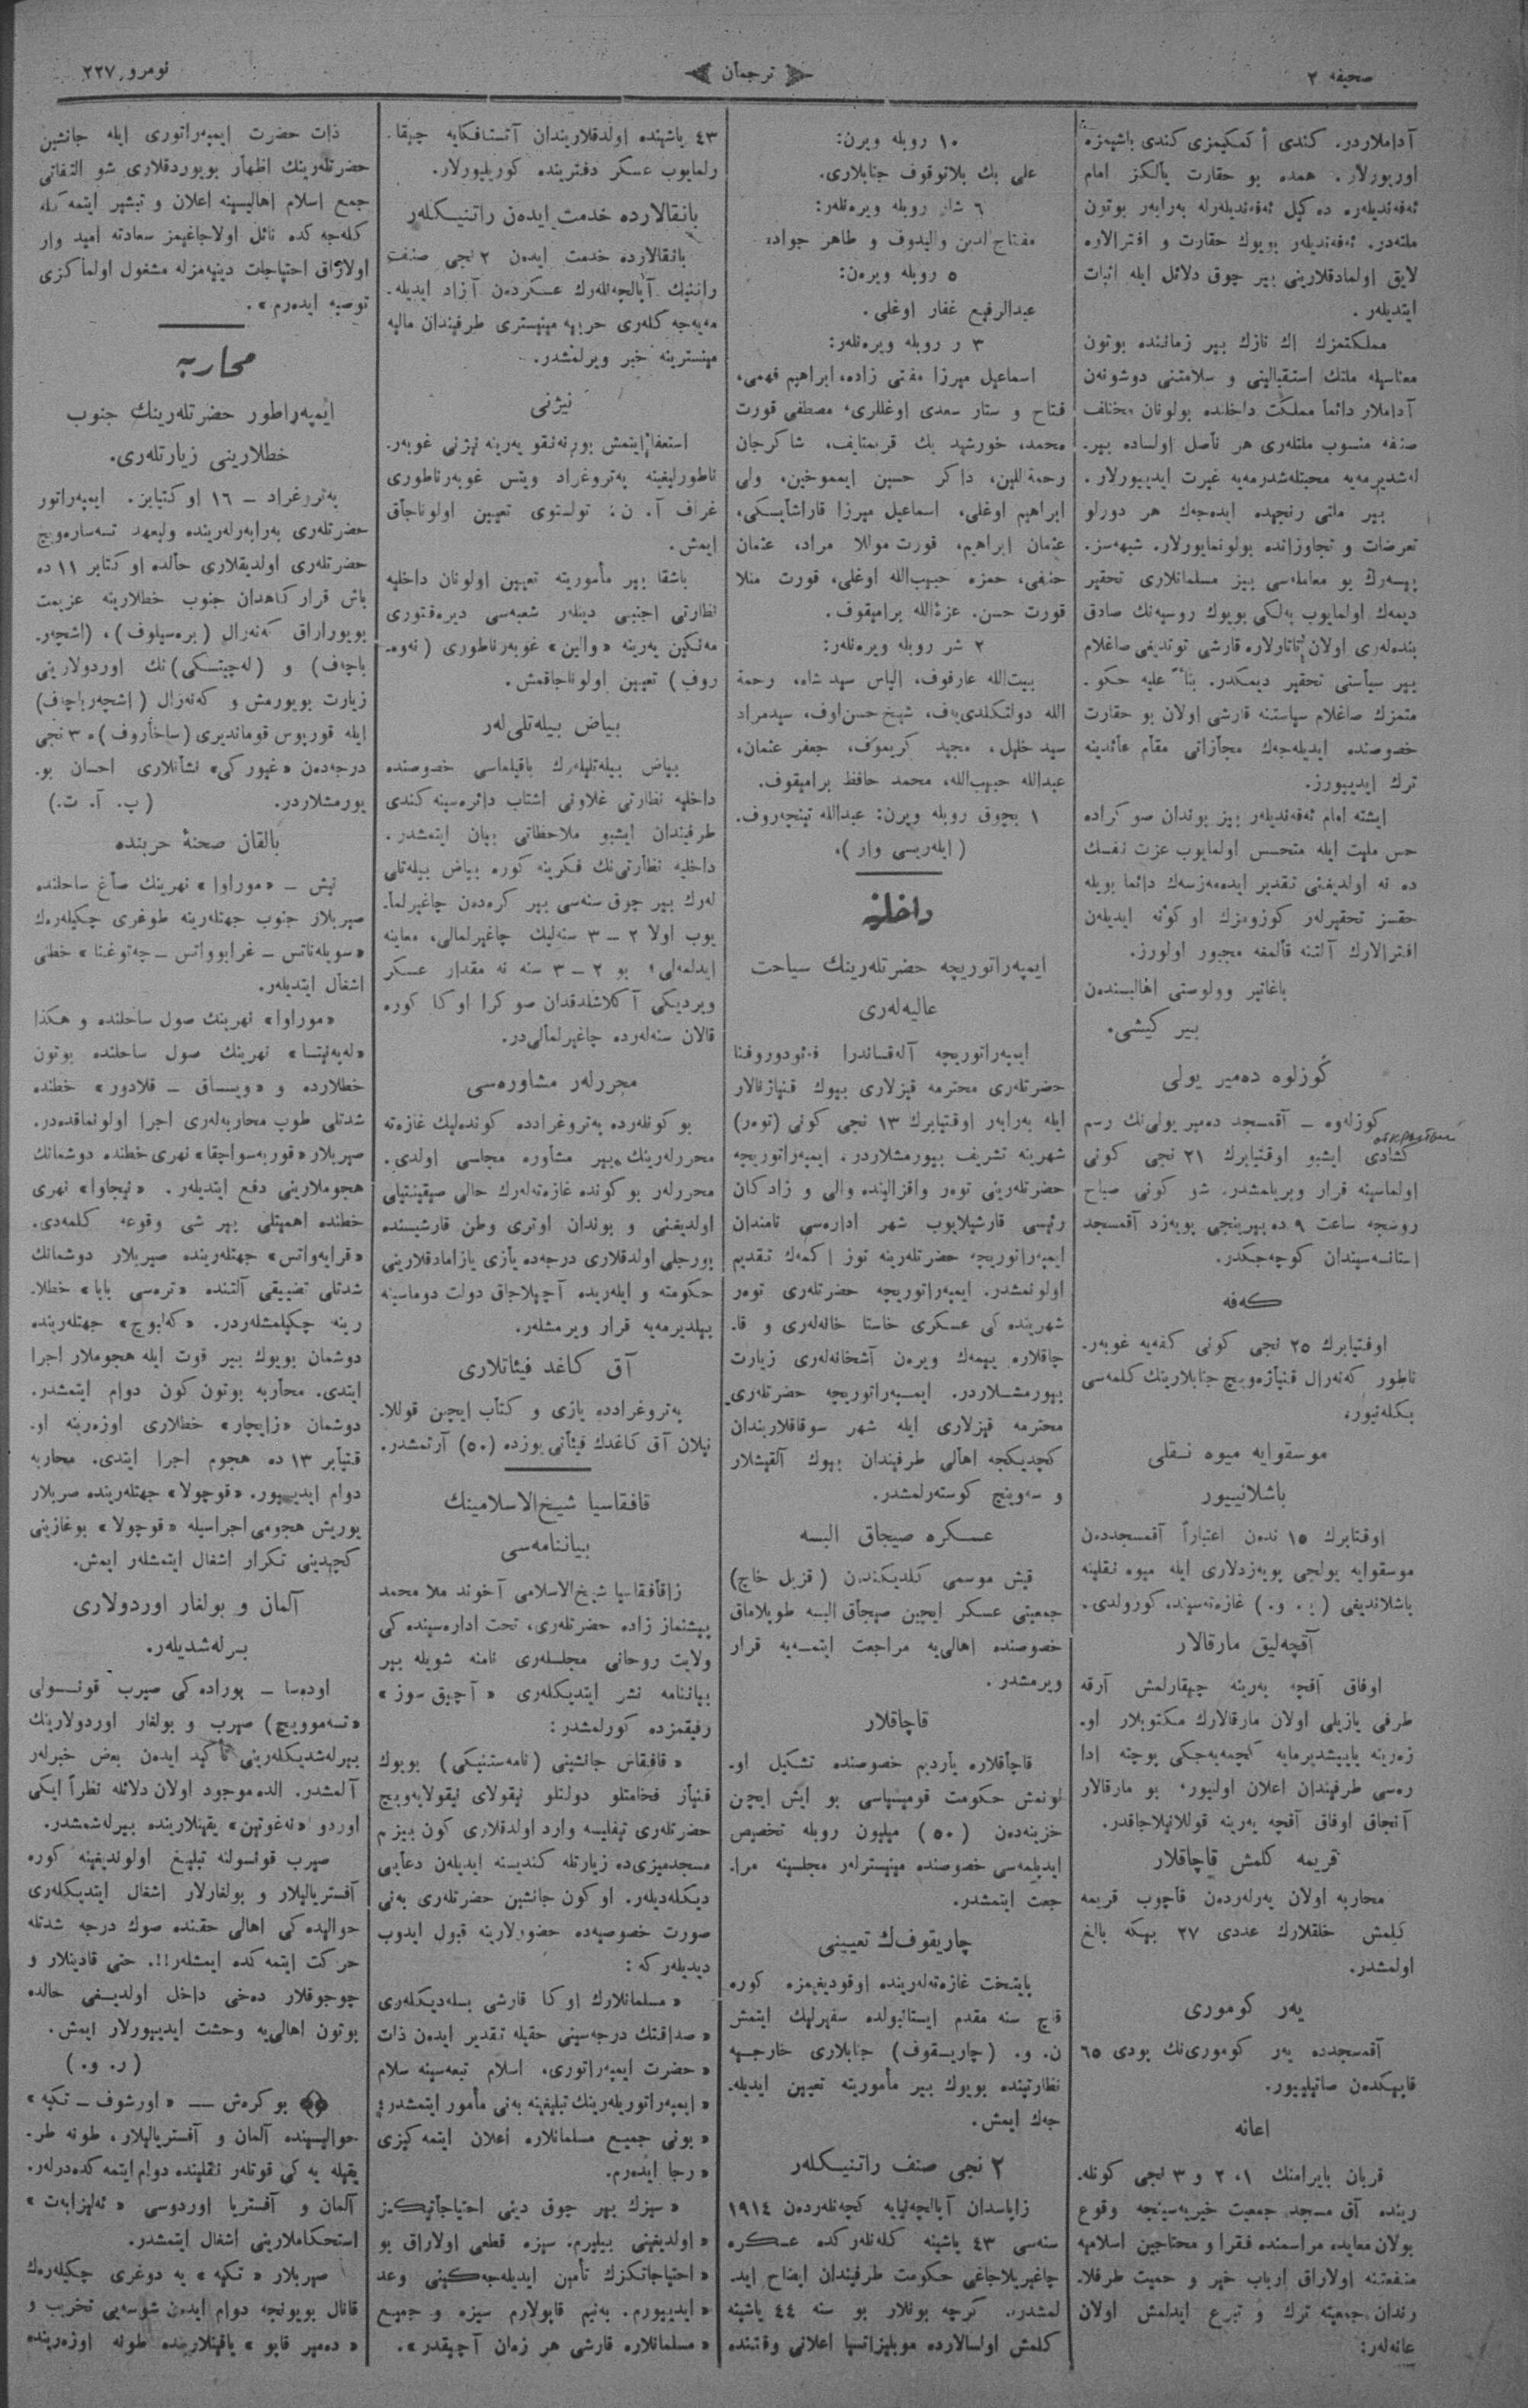 صحیفه ٢
ترجمان
نومرو ٢٢٧
آداملاردر. كندی أكمكیمزی كندی باشیمزه
اوریورلار. همده بو حقارت یالكز امام
ئەفەندیلەرە دەگیل ئەفەندیلەرلە بەرابەر بوتون
ملتەدر. ئەفەندیلەر بویوك حقارت و افترالاره
لایق اولمادقلارینی بیر چوق دلائل ایله اثبات
ایتدیلەر.
مملكتمزك اك نازك بیر زماننده بوتون
معناسیله ملتك استقبالینی و سلامتنی دوشونەن
آداملار دائما مملكت داخلنده بولونان مختلف
صنفه منسوب ملتلەری هر ناصل اولساده بیر.
لەشدیرمەیه محبتلەشدرمەیه غیرت ایدییورلار.
بیر ملتی رنجیده ایدەجەك هر دورلو
تعرضات و تجاوزاتده بولونمایورلار. شبهەسز.
بیسەرك بو معاملەسی بیز مسلمانلاری تحقیر
دیمەك اولمایوب بەلكی بویوك روسیەنك صادق
بندەلەری اولان تاتارلاره قارشی توتدیغی صاغلام
بیر سیاستی تحقیر دیمكدر. بناءً علیه حكو.
متمزك صاغلام سیاستنه قارشی اولان بو حقارت
خصوصنده ایدیلەجەك مجازاتی مقام عائدینه
ترك ایدییورز.
ایشته امام ئەفەندیلەر بیز بوندان صوكراده
حس ملیت ایله متحسس اولمایوب عزت نفسك
ده نه اولدیغنی تقدیر ایدەمەزسەك دائما بویله
حقسز تحقیرلەر كوزومزك اوكونه ایدیلەن
افترالارك آلتنه قالمغه مجبور اولورز.
باغاتیر وولوستی اهالیسندەن
بیر كیشی.
كوزلوه دەمیر یولی
كوزلەوه ــ آقمسجد دەمیر یولی‌نك رسم
كشادی ایشبو اوقتیابرك ٢١ نجی كونی
اولماسینه قرار ویریلمشدر. شو كونی صباح
روسجه ساعت ٩ ده بیرینجی پویەزد آقمسجد
استانسەسیندان كوچەجكدر.
كەفه
اوقتیابرك ٢٥ نجی كونی كفەیه غوبەر.
ناطور كەنەرال قنیازەویچ جنابلارینك كلمەسی
بكلەنیور.
موسقوایه میوه نقلی
باشلانییور
اوقتابرك ١٥ ندەن اعتباراً آقمسجددەن
موسقوایه یولجی پویەزدلاری ایله میوه نقلینه
باشلاندیغی (ی. و.) غازەتەسینده كورولدی.
آقچەلیق مارقالار
اوفاق آقچه یەرینه چیقارلمش آرقه
طرفی یازیلی اولان مارقالارك مكتوبلار او.
زەرینه یاپیشدیرمایه كچمەیەجكی پوچته ادا
رەسی طرفیندان اعلان اولنیور. بو مارقالار
آنجاق اوفاق آقچه یەرینه قوللانیلاجاقدر.
قریمه كلمش قاچاقلار
محاربه اولان یەرلەردەن قاچوب قریمه
كیلمش خلقلارك عددی ٢٧ بیكه بالغ
اولمشدر.
یەر كوموری
آقمسجدده یەر كوموری‌نك پودی ٦٥
قاپیكدەن صاتیلییور.
اعانه
قربان بایرامنك ١، ٢ و ٣ نجی كونلە.
رینده آق مسجد جمعیت خیریەسینجه وقوع
بولان معایده مراسمنده فقرا و محتاجین اسلامیه
منفعتنه اولاراق ارباب خیر و حمیت طرفلا.
رندان جمعیته ترك و تبرع ایدلمش اولان
عانەلەر:
١٠ روبله ویرن:
علی بك بلاتوقوف جنابلاری.
٦ شار روبله ویرەنلەر:
مفتاح‌الدین والیدوف و طاهر جواد.
٥ روبله ویرەن:
عبدالرفیع غفار اوغلی.
٣ ر روبله ویرەنلەر:
اسماعیل میرزا مفتی زاده، ابراهیم فهمی،
فتاح و ستار سعدی اوغللری، مصطفی قورت
محمد، خورشید بك قریمتایف، شاكرجان
رحمةاللین، ذاكر حسین ایمموخین، ولی
ابراهیم اوغلی، اسماعیل میرزا قاراشایسكی،
عثمان ابراهیم، قورت موللا مراد، عثمان
حنفی، حمزه حبیب‌الله اوغلی، قورت منلا
قورت حسن. عزةالله برامیقوف.
٢ شر روبله ویرەنلەر:
بیت‌الله عارفوف، الیاس سید شاه، رحمة
الله دولتكلدی‌یەف، شیخ حسن‌اوف، سیدمراد
سید خلیل، مجید كریموف، جعفر عثمان،
عبدالله حبیب‌الله، محمد حافظ برامیقوف.
١ بچوق روبله ویرن: عبدالله تینچەروف.
(ایلەریسی وار).
داخلیه
ایمپەراتوریچه حضرتلەرینك سیاحت
عالیەلەری
ایمپەراتوریچه آلەقساندرا فەئودوروفنا
حضرتلەری محترمه قیزلاری بیوك قنیاژنالار
ایله بەرابەر اوقتیابرك ١٣ نجی كونی (توەر)
شهرینه تشریف بیورمشلاردر. ایمپەراتوریچه
حضرتلەرینی توەر واقزالینده والی و زادكان
رئیسی قارشیلایوب شهر ادارەسی نامندان
ایمپەراتوریچه حضرتلەرینه توز اكمەك تقدیم
اولونمشدر. ایمپەراتوریچه حضرتلەری توەر
شهرینده كی عسكری خاستا خانەلەری و قا.
چاقلاره ییمەك ویرەن آشخانەلەری زیارت
بیورمشلاردر. ایمپەراتوریچه حضرتلەری
محترمه قیزلاری ایله شهر سوقاقلاریندان
كچدیكجه اهالی طرفیندان بیوك آلقیشلار
و سەوینچ كوستەرلمشدر.
عسكره صیجاق البسه
قیش موسمی كلدیكندن (قزیل خاچ)
جمعیتی عسكر ایچین صیجاق البسه طوپلاماق
خصوصنده اهالی‌یه مراجعت ایتمەیه قرار
ویرمشدر.
قاچاقلار
قاچاقلاره یاردیم خصوصنده تشكیل او.
لونمش حكومت قومیسیاسی بو ایش ایچن
خزینەدەن (٥٠) میلیون روبله تخصیص
ایدیلمەسی خصوصنده مینیسترلەر مجلسینه مرا.
جعت ایتمشدر.
چاریقوف‌ك تعیینی
پایتخت غازەتەلەرینده اوقودیغیمزه كوره
قاچ سنه مقدم ایستانبولده سفیرلیك ایتمش
ن. و. (چاریقوف) جنابلاری خارجیه
نظارتینده بویوك بیر مأموریته تعیین ایدیلە.
جەك ایمش.
٢ نجی صنف راتنیكلەر
زاپاسدان آپالچەنیایه كچەنلەردەن ١٩١٤
سنەسی ٤٣ یاشینه كلەنلەركده عسكره
چاغیریلاجاغی حكومت طرفیندان ایضاح اید.
لمشدر. كرچه بونلار بو سنه ٤٤ یاشینه
كلمش اولسالارده موبلیزاتسیا اعلانی وقتنده
٤٣ یاشینده اولدقلاریندان آتستافكایه چیقا.
رلمایوب عسكر دفترینده كوریلیورلار.
بانقالارده خدمت ایدەن راتنیكلەر
بانقالارده خدمت ایدەن ٢ نجی صنف
راتنیك آپالچەنلەرك عسكردەن آزاد ایدیلە.
مەیەجەكلەری حربیه مینیستری طرفیندان مالیه
مینسترینه خبر ویرلمشدر.
نیژنی
استعفا ایتمش بورنەنقو یەرینه نیژنی غوبەر.
ناطورلیغینه پەتروغراد ویتس غوبەرناطوری
غراف آ. ن: تولستوی تعیین اولوناجاق
ایمش.
باشقا بیر مأموریته تعیین اولونان داخلیه
نظارتی اجنبی دینلەر شعبەسی دیرەقتوری
مەنكین یەرینه «والین» غوبەرناطوری (نەوە.
روف) تعیین اولوناجاقمش.
بیاض بیلەتلی‌لەر
بیاض بیلەتلیلەرك باقیلماسی خصوصنده
داخلیه نظارتی غلاونی اشتاب دائرەسینه كندی
طرفیندان ایشبو ملاحظاتی بیان ایتمشدر.
داخلیه نظارتی‌نك فكرینه كوره بیاض بیلەتلی
لەرك بیر چوق سنەسی بیر كرەدەن چاغیرلما.
یوب اولا ٢ ــ ٣ سنەلیك چاغیرلمالی، معاینه
ایدلمەلی، بو ٢ ــ ٣ سنه نه مقدار عسكر
ویردیكی آكلاشلدقدان صوكرا اوكا كوره
قالان سنەلەرده چاغیرلمالی‌در.
محررلەر مشاورەسی
بو كونلەرده پەتروغرادده كوندەلیك غازەتە
محررلەرینك بیر مشاوره مجلسی اولدی.
محررلەر بو كونده غازەتەلەرك حالی صیقینتیلی
اولدیغنی و بوندان اوتری وطن قارشیسنده
بورجلی اولدقلاری درجەده یازی یازامادقلارینی
حكومته و ایلەریده آچیلاجاق دولت دوماسینه
بیلدیرمەیه قرار ویرمشلەر.
آق كاغد فیئاتلاری
پەتروغرادده یازی و كتاب ایچین قوللا.
نیلان آق كاغدك فیئاتی یوزده (٥٠) آرتمشدر.
قافقاسیا شیخ‌الاسلامینك
بیاننامەسی
زاقافقاسیا شیخ‌الاسلامی آخوند ملا محمد
پیشنماز زاده حضرتلەری، تحت ادارەسینده كی
ولایت روحانی مجلسلەری نامنه شویله بیر
بیاننامه نشر ایتدیكلەری «آچیق سوز»
رفیقمزده كورلمشدر:
«قافقاس جانشینی (نامەستنیكی) بویوك
قنیاز فخامتلو دولتلو نیقولای نیقولایەویچ
حضرتلەری تیفلیسه وارد اولدقلاری كون بیزم
مسجدمیزی‌ده زیارتله كندیسنه ایدیلەن دعایی
دیكلەدیلەر. اوكون جانشین حضرتلەری بەنی
صورت خصوصیەده حضورلارینه قبول ایدوب
دیدیلەر كه:
«مسلمانلارك اوكا قارشی بسلەدیكلەری
«صداقتك درجەسینی حقیله تقدیر ایدەن ذات
«حضرت ایمپەراتوری، اسلام تبعەسینه سلام
«ایمپەراتوریلەرینك تبلیغینه بەنی مأمور ایتمشدر؛
«بونی جمیع مسلمانلاره اعلان ایتمەكیزی
«رجا ایدەرم.
«سیزك بیر چوق دینی احتیاجاتیكیز
«اولدیغینی بیلیرم. سیزه قطعی اولاراق بو
«احتیاجاتكزك تأمین ایدیلەجەكینی وعد
«ایدییورم. بەنیم قاپولارم سیزه و جمیع
«مسلمانلاره قارشی هر زمان آچیقدر».
ذات حضرت ایمپەراتوری ایله جانشین
حضرتلەرینك اظهار بویوردقلاری شو التفاتی
جمع اسلام اهالیسینه اعلان و تبشیر ایتمەكله
كلەجەكده نائل اولاجاغیمز سعادته امید وار
اولاراق احتیاجات دینیەمزله مشغول اولماكزی
توصیه ایدەرم».
محاربه
ایمپەراطور حضرتلەرینك جنوب
خطلارینی زیارتلەری.
پەتروغراد ــ ١٦ اوكتیابر. ایمپەراتور
حضرتلەری بەرابەرلەرینده ولیعهد تسەسارەویچ
حضرتلەری اولدیقلاری حالده اوكتابر ١١ ده
باش قرارگاهدان جنوب خطلارینه عزیمت
بویوراراق كەنەرال (برەسیلوف)، (اشچەر.
باچەف) و (لەچیتسكی)نك اوردولارینی
زیارت بویورمش و كەنەرال (اشچەرباچەف)
ایله قورپوس قوماندیری (ساخاروف)ه ٣ نجی
درجەدەن «غیورگی» نشانلاری احسان بو.
یورمشلاردر. (پ. آ. ت.)
بالقان صحنۀ حربنده
نیش ــ «موراوا» نهرینك صاغ ساحلنده
صیربلار جنوب جهتلەرینه طوغری چكیلەرەك
«سویلەناتس ــ غرابوواتس ــ چەتوغنا» خطنی
اشغال ایتدیلەر.
«موراوا» نهرینك صول ساحلنده و هكذا
«لەپەنیتسا» نهرینك صول ساحلنده بوتون
خطلارده و «ویساق ــ قلادور» خطنده
شدتلی طوپ محاربەلەری اجرا اولونماقدەدر.
صیربلار «قوربەسواچقا» نهری خطنده دوشمانك
هجوملارینی دفع ایتدیلەر. «نیجاوا» نهری
خطنده اهمیتلی بیر شی وقوعه كلمەدی.
«قرایەواتس» جهتلەرینده صیربلار دوشمانك
شدتلی تضییقی آلتنده «ترەسی بابا» خطلا.
رینه چكیلمشلەردر. «كەابوچ» جهتلەرینده
دوشمان بویوك بیر قوت ایله هجوملار اجرا
ایتدی. محاربه بوتون كون دوام ایتمشدر.
دوشمان «زایچار» خطلاری اوزەرینه او.
قتیابر ١٣ ده هجوم اجرا ایتدی. محاربه
دوام ایدییور. «قوچولا» جهتلەرینده صربلار
یوریش هجومی اجراسیله «قوچولا» بوغازینی
كچیدینی تكرار اشغال ایتمشلەر ایمش.
آلمان و بولغار اوردولاری
برلەشدیلەر.
اودەسا ــ بوراده كی صیرب قونسولی
«تسەموویچ) صیرب و بولغار اوردولارینك
بیرلەشدیكلەرینی تأكید ایدەن بعض خبرلەر
آلمشدر. الده موجود اولان دلائله نظراً ایكی
اوردو «نەغوتین» یقینلارینده بیرلەشمشدر.
صیرب قونسولنه تبلیغ اولوندیغینه كوره
آفستریالیلار و بولغارلار اشغال ایتدیكلەری
حوالیده كی اهالی حقنده صوك درجه شدتله
حركت ایتمەكده ایمشلەر!!. حتی قادینلار و
چوجوقلار دەخی داخل اولدیغی حالده
بوتون اهالی‌یه وحشت ایدییورلار ایمش.
(ر. و.)
بوكرەش ــ «اورشوف ــ تكیه»
حوالیسینده آلمان و آفستریالیلار، طونه طر.
یقیله یەكی قوتلەر نقلینده دوام ایتمەكدەدرلەر.
آلمان و آفستریا اوردوسی «ئەلیزابەت»
استحكاملارینی اشغال ایتمشدر.
صیربلار «تكیه» یه دوغری چكیلەرەك
قانال بویونجه دوام ایدەن شوسەیی تخریب و
«دەمیر قاپو» یاقینلارینده طونه اوزەرینده